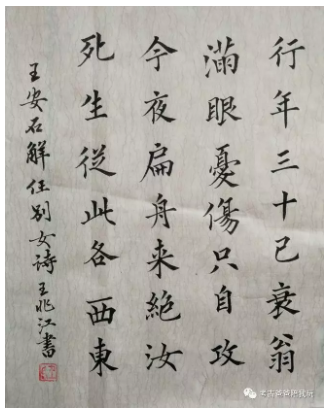 行年三十已衰翁
滿眼憂傷只自攻
今夜扁舟来絕汝
死生從此各西東
王安石解任别女詩王兆江書